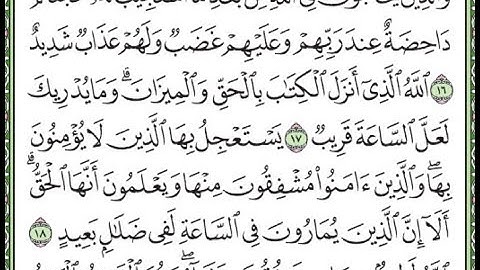 دَاحِضَةٌ عِندَ رَبِّهِمْ وَعَلَيْهِمْ غَضَبٌ وَلَهُمْ عَذَابٌ شَدِيدٌ
١٦ ٱللَّهُ ٱلَّذِىٓ أَنزَلَ ٱلْكِتَٰبَ بِٱلْحَقِّ وَٱلْمِيزَانَ ۗ وَمَا يُدْرِيكَ
لَعَلَّ ٱلسَّاعَةَ قَرِيبٌ ١٧ يَسْتَعْجِلُ بِهَا ٱلَّذِينَ لَا يُؤْمِنُونَ
بِهَا ۖ وَٱلَّذِينَ ءَامَنُوا۟ مُشْفِقُونَ مِنْهَا وَيَعْلَمُونَ أَنَّهَا ٱلْحَقُّ ۗ
أَلَآ إِنَّ ٱلَّذِينَ يُمَارُونَ فِى ٱلسَّاعَةِ لَفِى ضَلَٰلٍۭ بَعِيدٍ ١٨